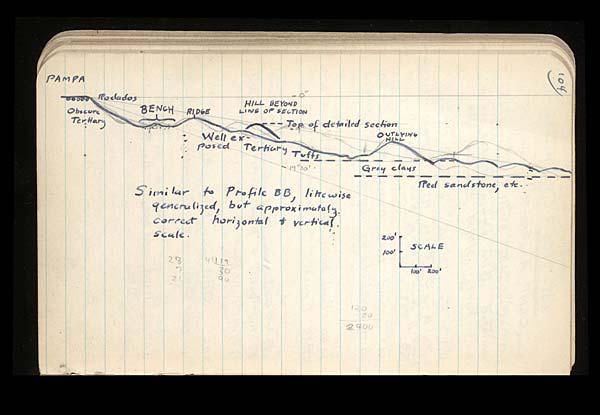 104
PAMPA
Rodados
Obscure
Tertiary
BENCH
RIDGE
HILL BEYOND
LINE OF SECTION
Top of detailed section
Well ex-
posed Tertiary
Tuffs
OUTLYING
HILL
Grey clays
Red sandstone, etc.
Similar to Profile BB, likewise
generalized, but approximately
correct horizontal & vertical
scale.
200'
100'
SCALE
100' 200'
30
90
120
20
2400